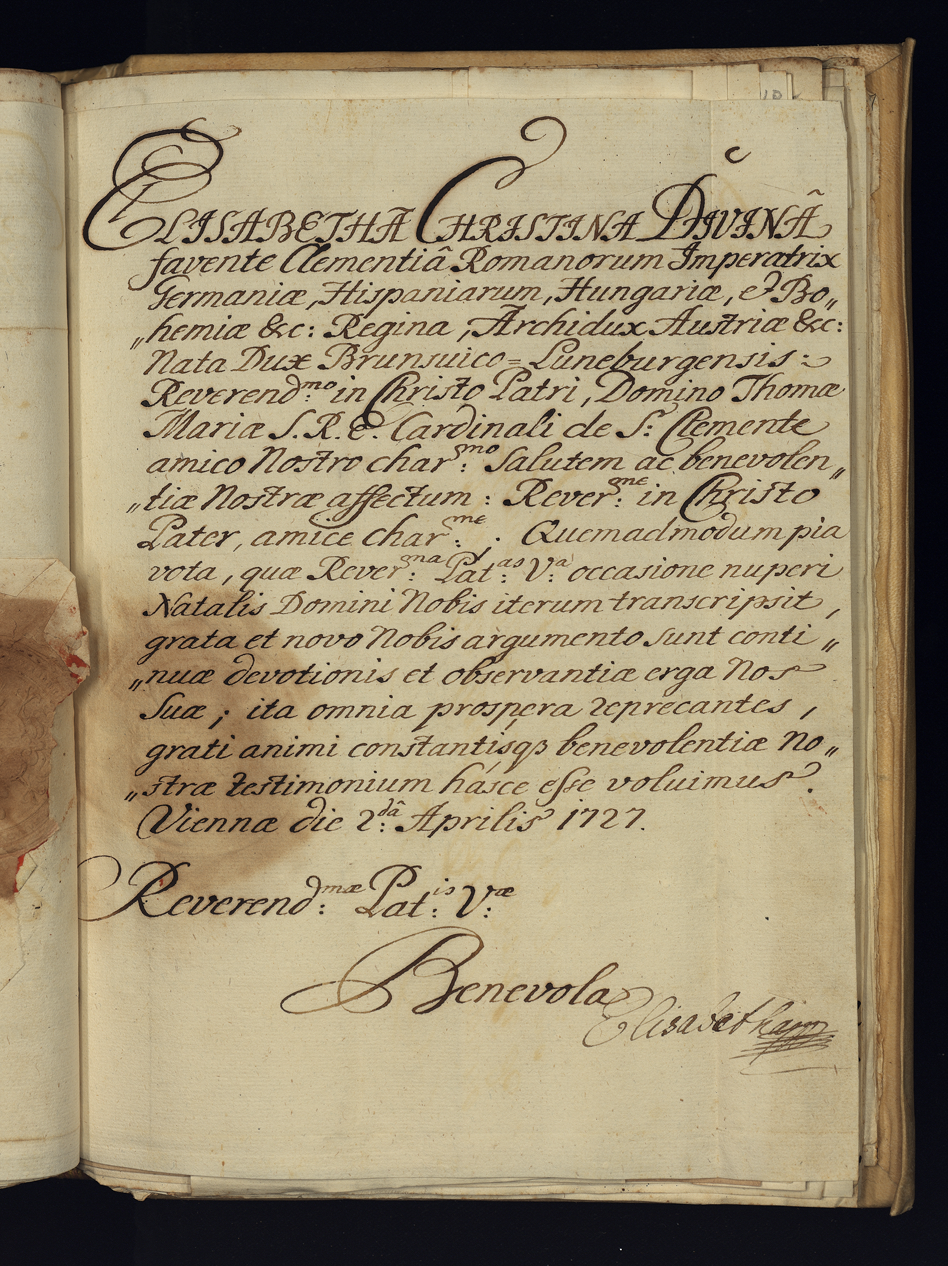 ELISABETHA CHRISTINA DIVINÂ
favente Clementiâ Romanorum Imperatrix
Germaniæ, Hispaniarum, Hungariæ, et Bo„
„hemiæ &c: Regina, Archidux Austriæ &c:
Nata Dux Brunsuico=Luneburgensis:
Reverend:mo in Christo Patri, Domino Thomæ
Mariæ S. R. E. Cardinali de S: Clemente
amico Nostro char:mo Salutem ac benevolen„
„tiæ Nostræ affectum: Rever:me in Christo
Pater, amice char:me. Quemadmodum pia
vota, quæ Rever:ma Pat:as V:a occasione nuperi
Natalis Domini Nobis iterum transcripsit,
grata et novo Nobis argumento sunt conti„
„nuæ devotionis et observantiæ erga Nos
suæ; ita omnia prospera reprecantes,
grati animi constantisq3 benevolentiæ No„
„stræ testimonium hásce esse voluimus.
Viennæ die 2:dâ Aprilis 1727.
Reverend:mæ Pat:is V:æ
Benevola
Elisabetha